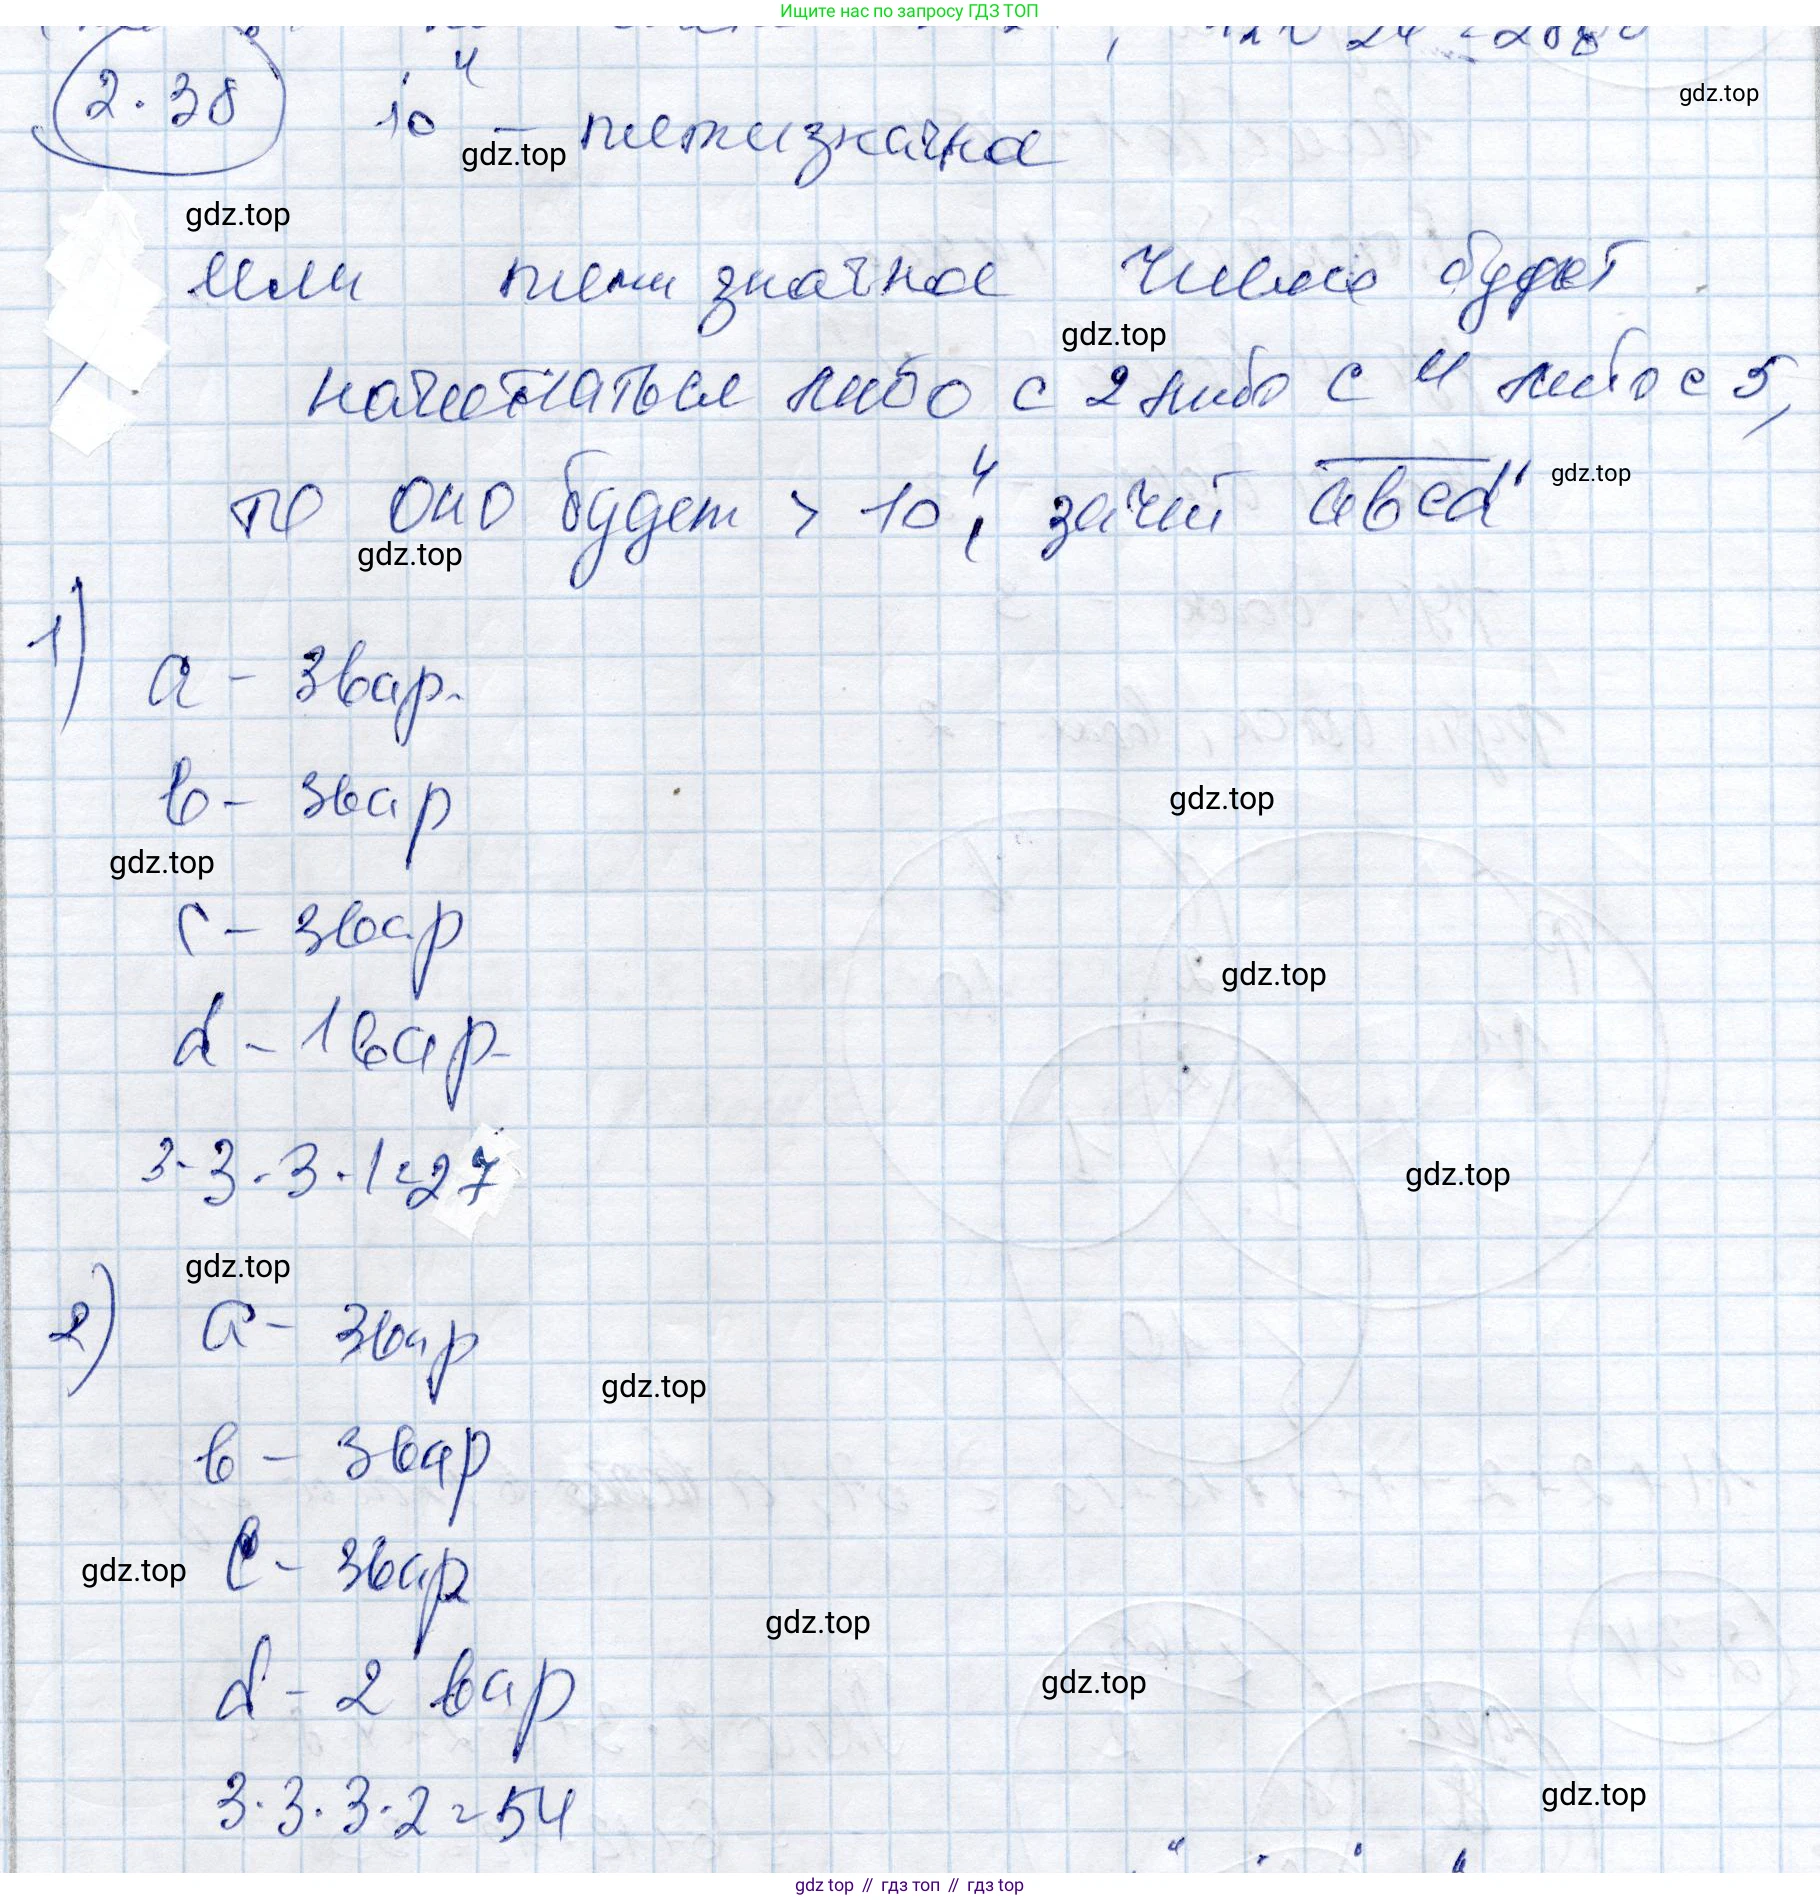 Ищите нас по запросу ГДЗ ТОП
gdz.top
2.38 10⁴ – пятизначна
gdz.top
gdz.top
Если пятизначное число будет
gdz.top
начинаться либо с 2 либо с 4 либо с 5,
то оно будет > 10⁴, значит abcd
gdz.top
gdz.top
1)
a – 3 вар.
b – 3 вар
gdz.top
gdz.top
c – 3 вар
gdz.top
d – 1 вар.
3·3·3·1=27
gdz.top
gdz.top
2) a – 3 вар
gdz.top
b – 3 вар
c – 3 вар
gdz.top
gdz.top
d – 2 вар
gdz.top
3·3·3·2=54
gdz.top
gdz top // гдз топ // гдз top